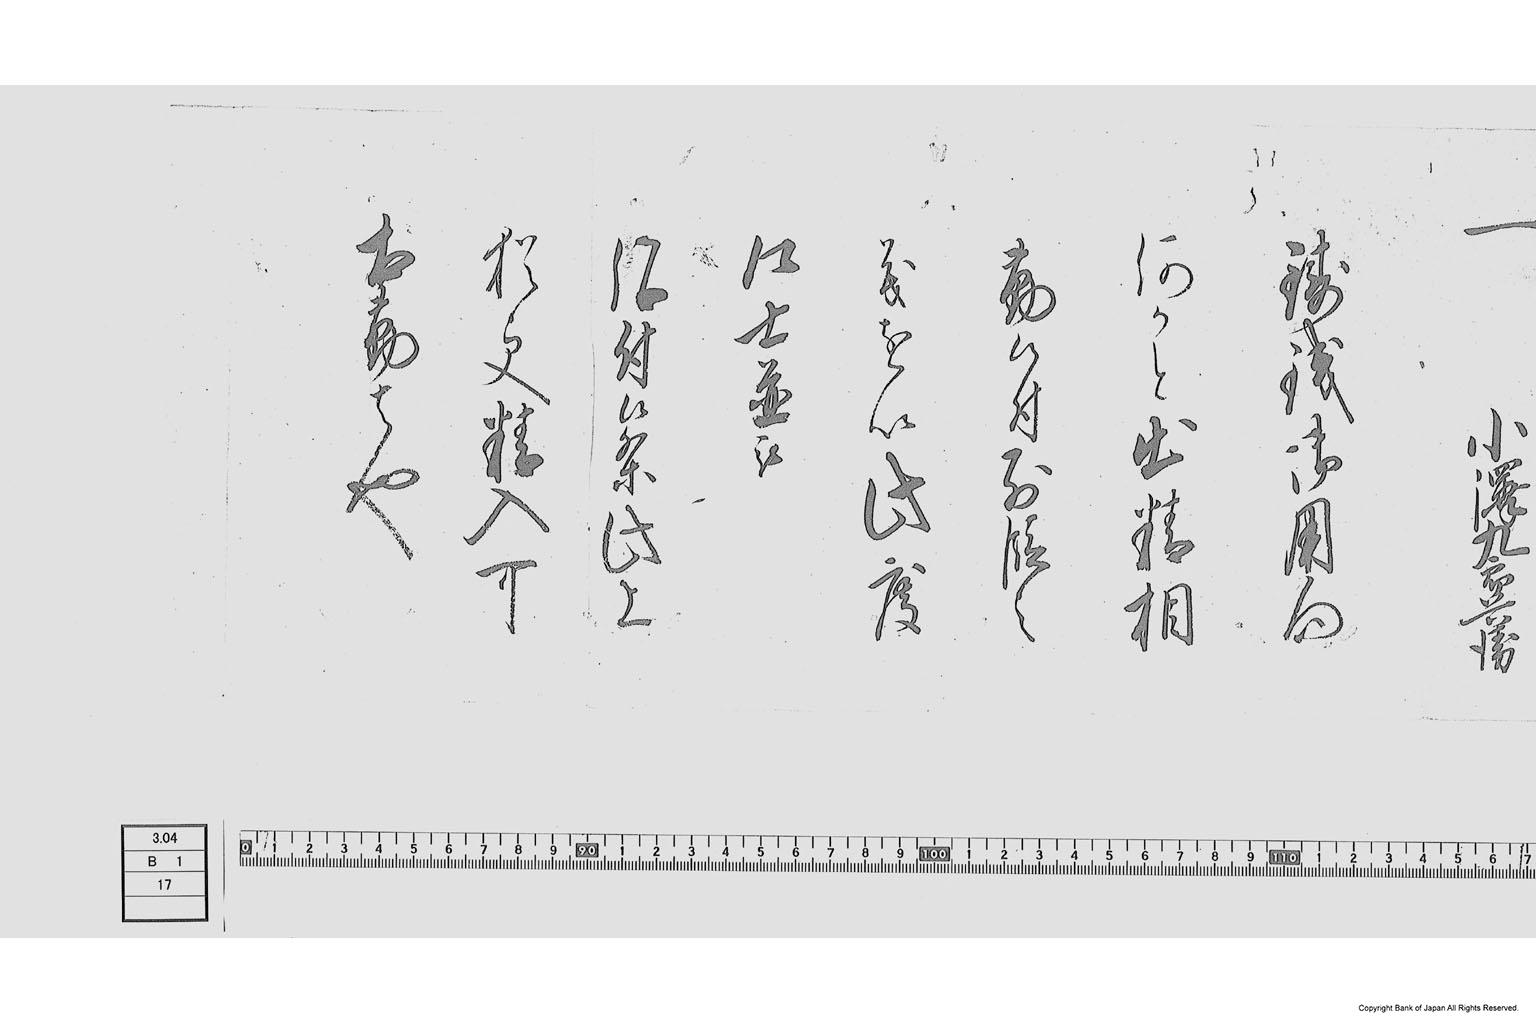 一
小澤九
鋳銭御用向
何かと出精相
勤候付別段之
義を以此度
士並被
仰付候条此上
猶更精入可
相勤者也
3.04
B 1
17
0 1 2 3 4 5 6 7 8 9 90 1 2 3 4 5 6 7 8 9 100 1 2 3 4 5 6 7 8 9 110 1 2 3 4 5 6 7
Copyright Bank of Japan All Rights Reserved.